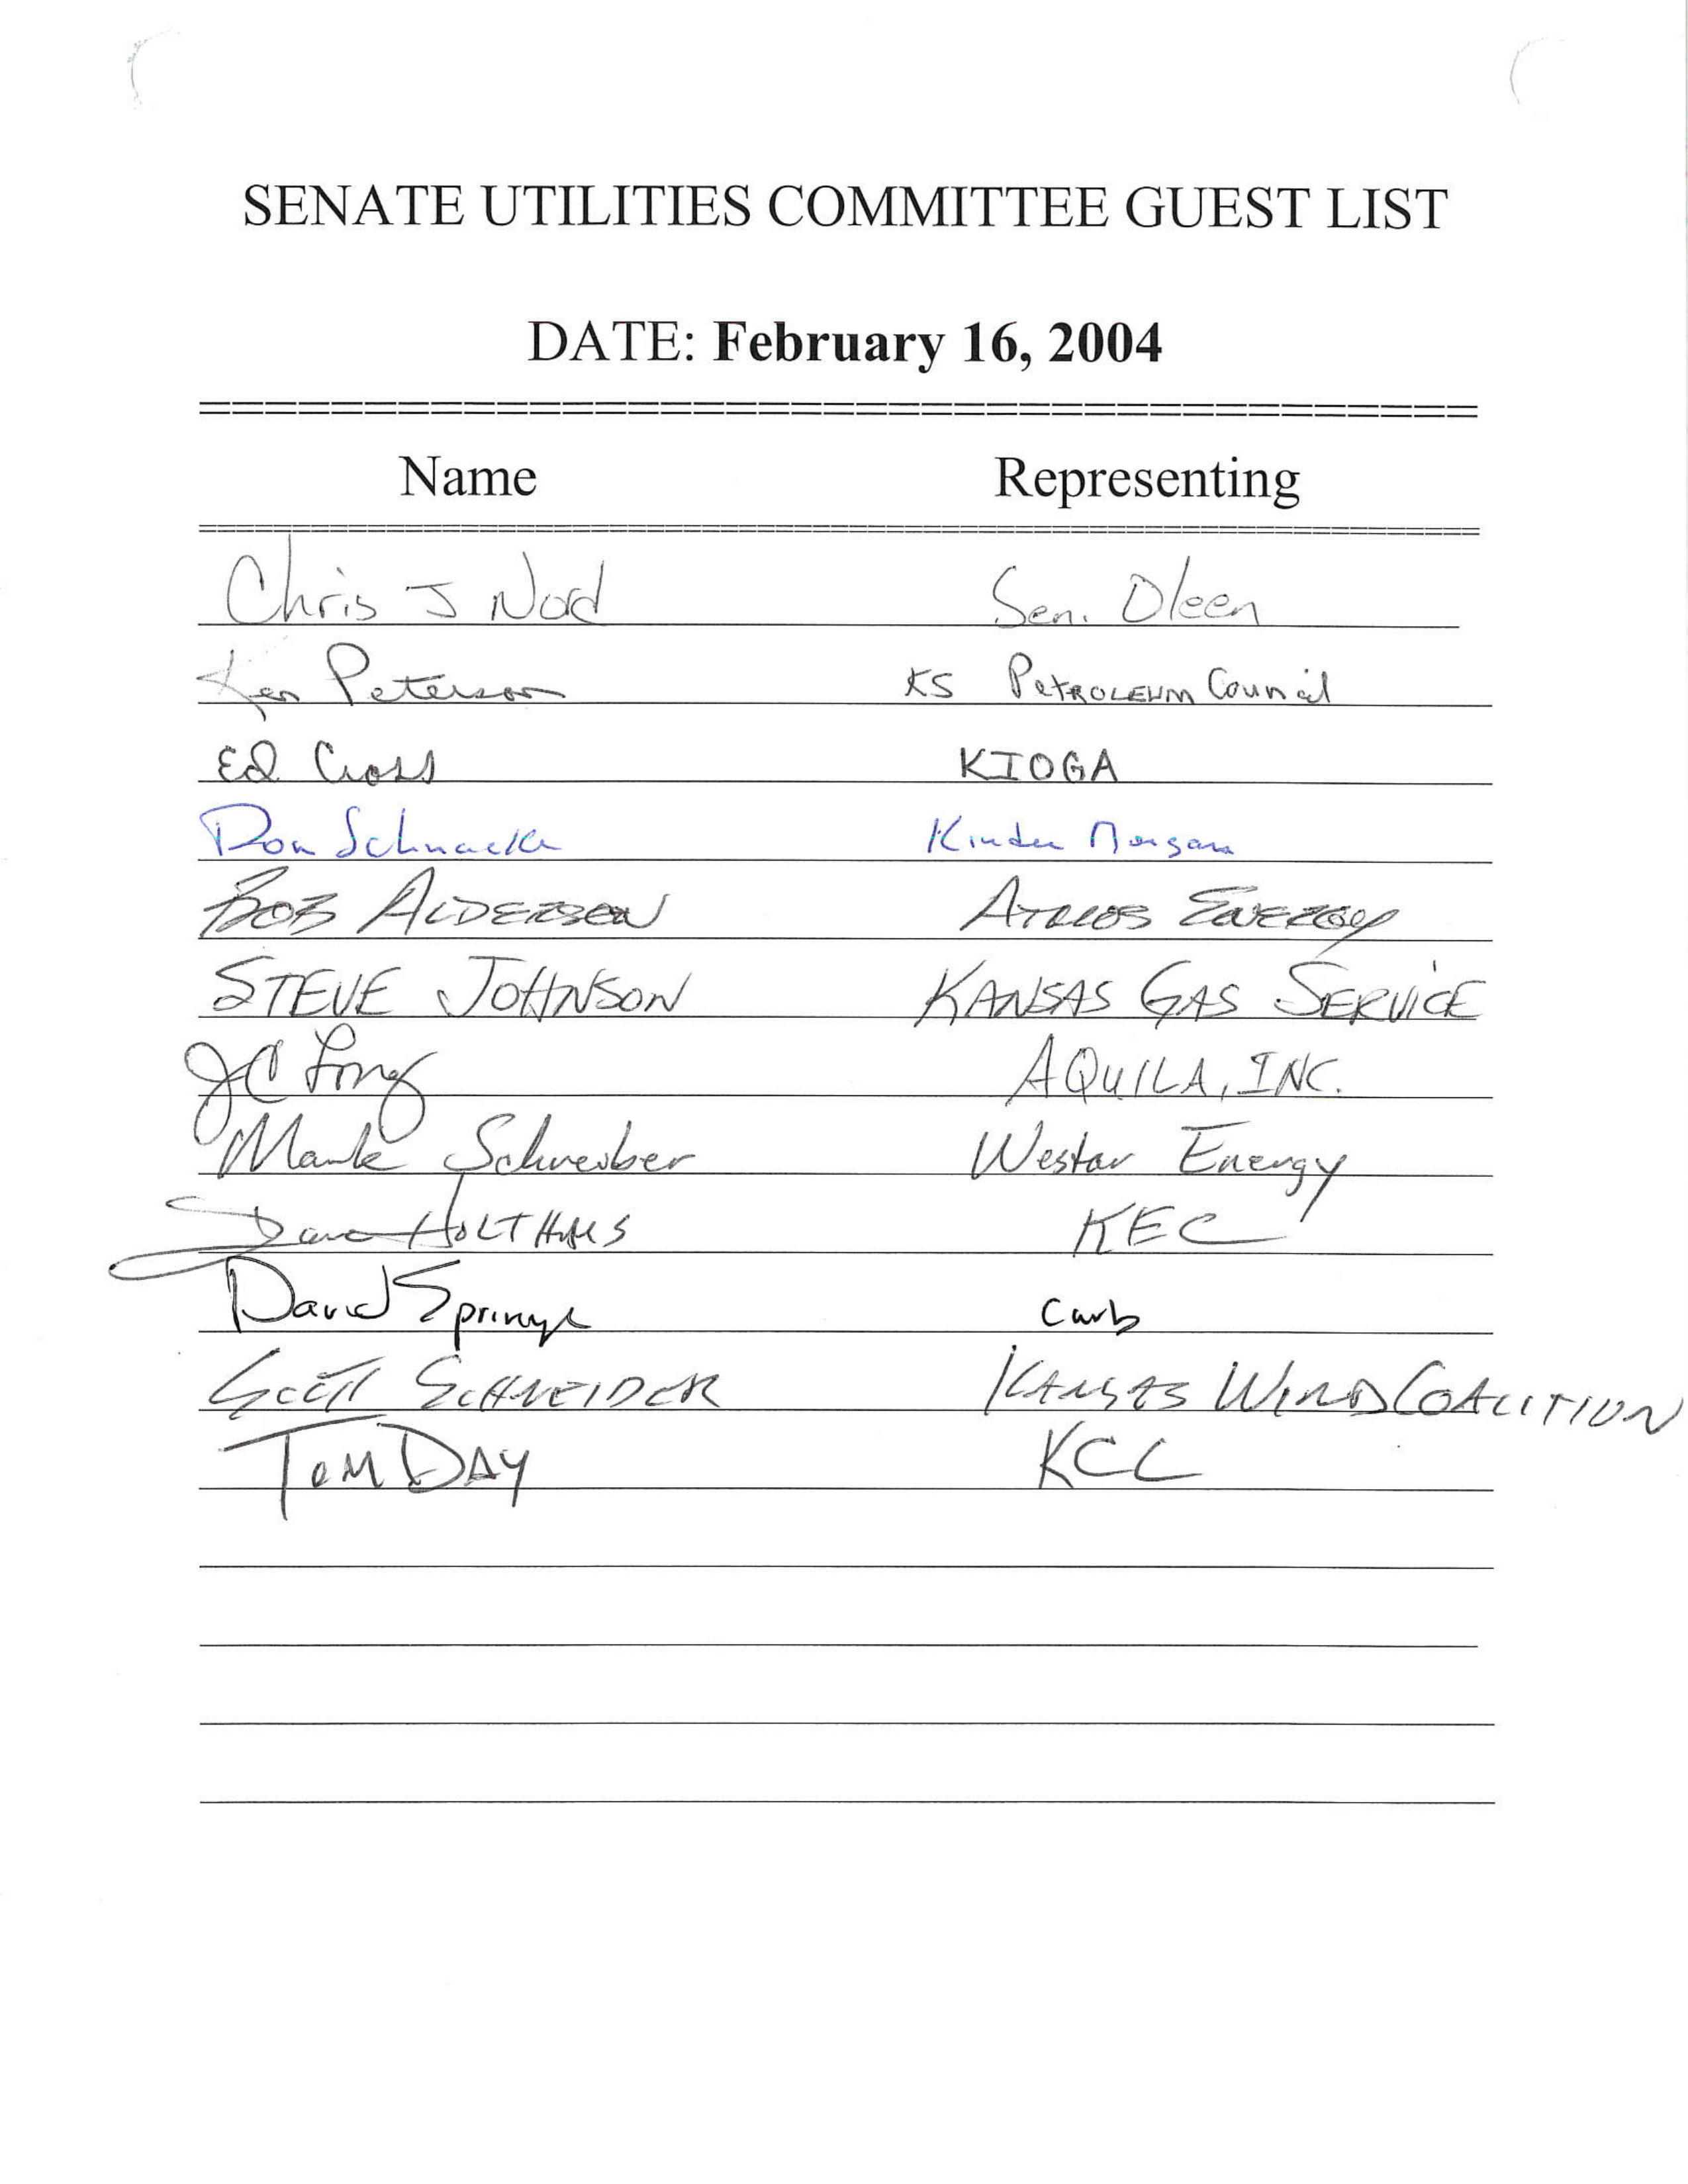 SENATE UTILITIES COMMITTEE GUEST LIST
DATE: February 16, 2004
Name Representing
Chris J Nord Sen. Oleen
Ken Peterson KS PETROLEUM Council
Ed Cross KIOGA
Don Schnacke Kinder Morgan
BOB ALDERSON ATMOS ENERGY
STEVE JOHNSON KANSAS GAS SERVICE
JC Long AQUILA, INC.
Mark Schreiber Westar Energy
Dave HOLTHAUS KEC
David Springe Curb
SCOTT SCHNEIDER KANSAS WIND COALITION
TOM DAY KCC